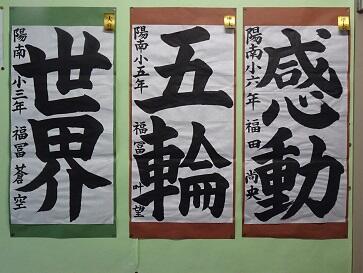 感動
陽南小六年 福田 尚央
五輪
陽南小五年 福冨 叶望
世界
陽南小三年 福冨 蒼空